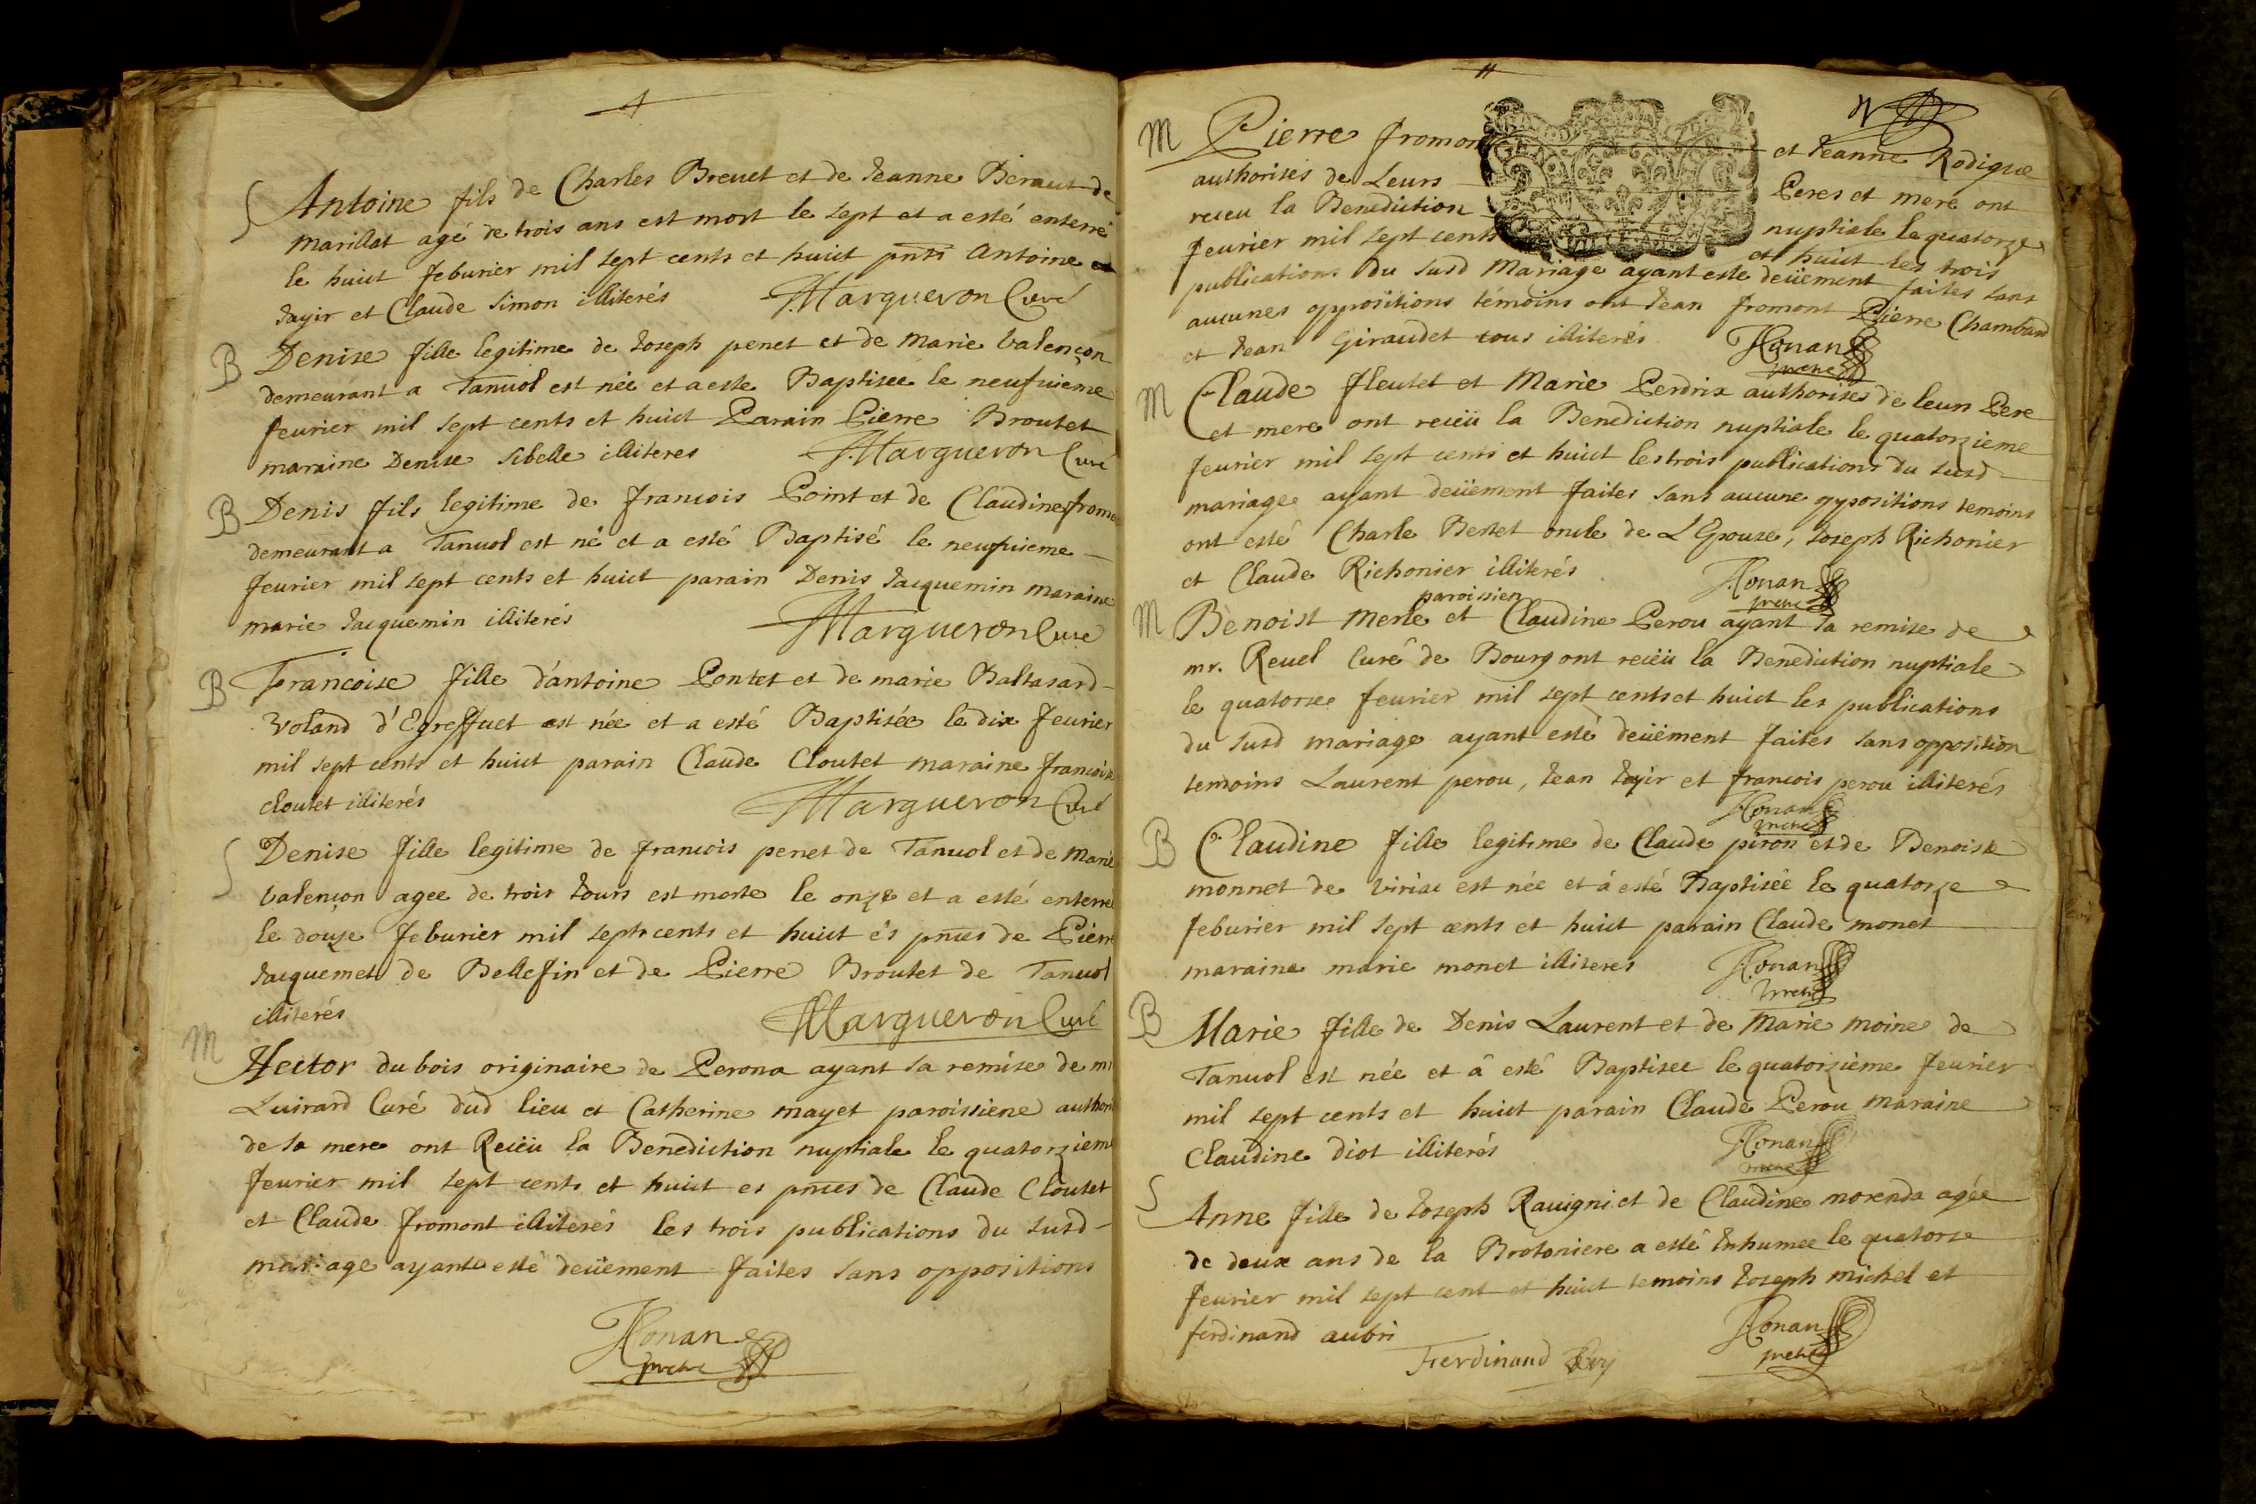 S Antoine fils de Charles Breuet et de Jeanne Béraut de
marillat agé de trois ans est mort le sept et a esté enterré
le huict feburier mil sept cents et huict pnts Antoine
Jayir et Claude Simon illiterés Margueron Curé
B Denise fille legitime de Joseph penet et de Marie Valençon
demeurant a Tanuol est née et a este Baptisée le neufuieme
feurier mil sept cents et huict Parain Pierre Broutet
maraine Denise Sibelle illiteres Margueron Curé
B Denis fils legitime de francois Point et de Claudine fromo
demeurant a Tanuol est né et a esté Baptisé le neufuieme
feurier mil sept cents et huict parain Denis Jacquemin maraine
marie Jacquemin illiterés Margueron Curé
B Francoise fille d'antoine Pontet et de marie Baltasard
Voland d'Egreffuet est née et a esté Baptisée le dix feurier
mil sept cents et huict parain Claude Cloutet maraine francoise
cloutet illiterés Margueron Curé
S Denise fille legitime de francois penet de Tanuol et de Marie
Valençon agee de trois Jours est morte le onze et a esté enterre
le douze feburier mil sept cents et huict és pnces de Pierre
Jacquemet de Bellefin et de Pierre Broutet de Tanuol
illiterés Margueron Curé
M Hector du bois originaire de Perona ayant sa remise de mr
Luirard Curé dud lieu et Catherine mayet paroissiene authori
de sa mere ont Receü la Benediction nuptiale le quatorziem
feurier mil sept cents et huict es pnces de Claude Cloutet
et Claude fromont illiterés les trois publications du susd
mariage ayant esté deüement faites sans oppositions
Honan
pretre
M Pierre fromon et Jeanne Rodigue
authorisés de Leurs Peres et mere ont
receu la Benediction nuptiale le quatorze
feurier mil sept cents et huict les trois
publications du susd Mariage ayant este deüement faites sans
aucunes oppositions témoins ont Jean fromont Pierre Chamband
et Jean Giraudet tous illiterés Honan
pretre
M Claude fleutet et Marie Perdrix authorisés de leurs Pere
et mere ont receü la Benediction nuptiale le quatorzieme
feurier mil sept cents et huict les trois publications du susd
mariage ayant deüement faites sans aucune oppositions temoins
ont esté Charle Bertet oncle de L'Epouse, Joseph Richonier
et Claude Richonier illiterés Honan
paroissien pretre
M Benoist Merle et Claudine Perou ayant sa remise de
mr. Reuel Curé de Bourg ont receü la Benediction nuptiale
le quatorze feurier mil sept cents et huict les publications
du susd mariage ayant esté deüement faites sans opposition
temoins Laurent perou, Jean Jayir et francois perou illiterés
Honan
pretre
B Claudine fille legitime de Claude piron et de Benoiste
monnet de Viriac est née et a esté Baptisée le quatorze
feburier mil sept cents et huict parain Claude monet
maraine marie monet illiteres Honan
pretre
B Marie fille de Denis Laurent et de Marie moine de
Tanuol est née et a esté Baptisee le quatorzieme feurier
mil sept cents et huict parain Claude Perou maraine
Claudine diot illiterés Honan
pretre
S Anne fille de Joseph Rauigni et de Claudine morenda agée
de deux ans de la Brotoniere a esté Inhumee le quatorse
feurier mil sept cent et huict temoins Joseph michel et
ferdinand aubri Honan
Ferdinand pretre